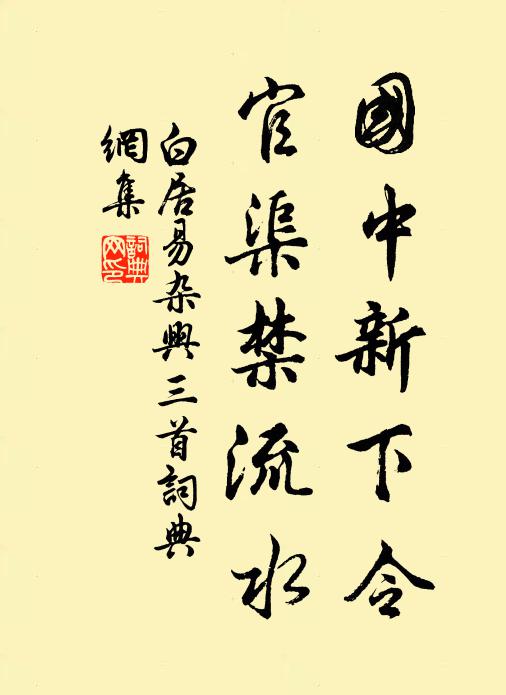 國中新下令
官渠禁流水
白居易杂興三首詞典
網集
詞典网印